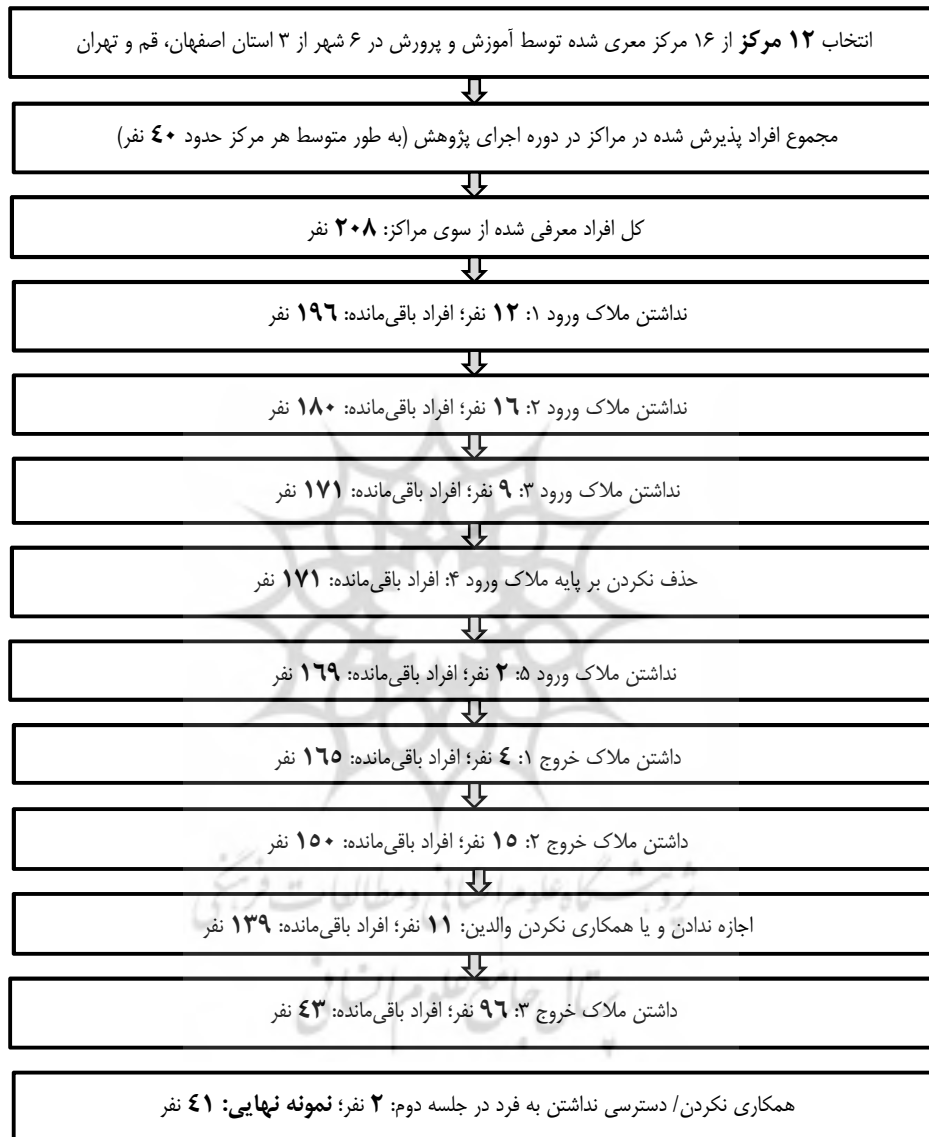 انتخاب ۱۲ مرکز از ۱۶ مرکز معری شده توسط آموزش و پرورش در ۶ شهر از ۳ استان اصفهان، قم و تهران
مجموع افراد پذیرش شده در مراکز در دوره اجرای پژوهش (به طور متوسط هر مرکز حدود ٤٠ نفر)
کل افراد معرفی شده از سوی مراکز: ۲۰۸ نفر
نداشتن ملاک ورود ۱: ۱۲ نفر؛ افراد باقی‌مانده: ۱۹٦ نفر
نداشتن ملاک ورود ۲: ۱٦ نفر؛ افراد باقی‌مانده: ۱۸۰ نفر
نداشتن ملاک ورود ۳: ۹ نفر؛ افراد باقی‌مانده: ۱۷۱ نفر
حذف نکردن بر پایه ملاک ورود ۴: افراد باقی‌مانده: ۱۷۱ نفر
نداشتن ملاک ورود ۵: ۲ نفر؛ افراد باقی‌مانده: ۱٦۹ نفر
داشتن ملاک خروج ۱: ٤ نفر؛ افراد باقی‌مانده: ۱٦٥ نفر
داشتن ملاک خروج ۲: ۱٥ نفر؛ افراد باقی‌مانده: ۱٥۰ نفر
پژوهشگاه علوم انسانی و مطالعات فرهنگی
اجازه ندادن و یا همکاری نکردن والدین: ۱۱ نفر؛ افراد باقی‌مانده: ۱۳۹ نفر
پرتال جامع علوم انسانی
داشتن ملاک خروج ۳: ۹٦ نفر؛ افراد باقی‌مانده: ٤۳ نفر
همکاری نکردن/ دسترسی نداشتن به فرد در جلسه دوم: ۲ نفر؛ نمونه نهایی: ٤۱ نفر